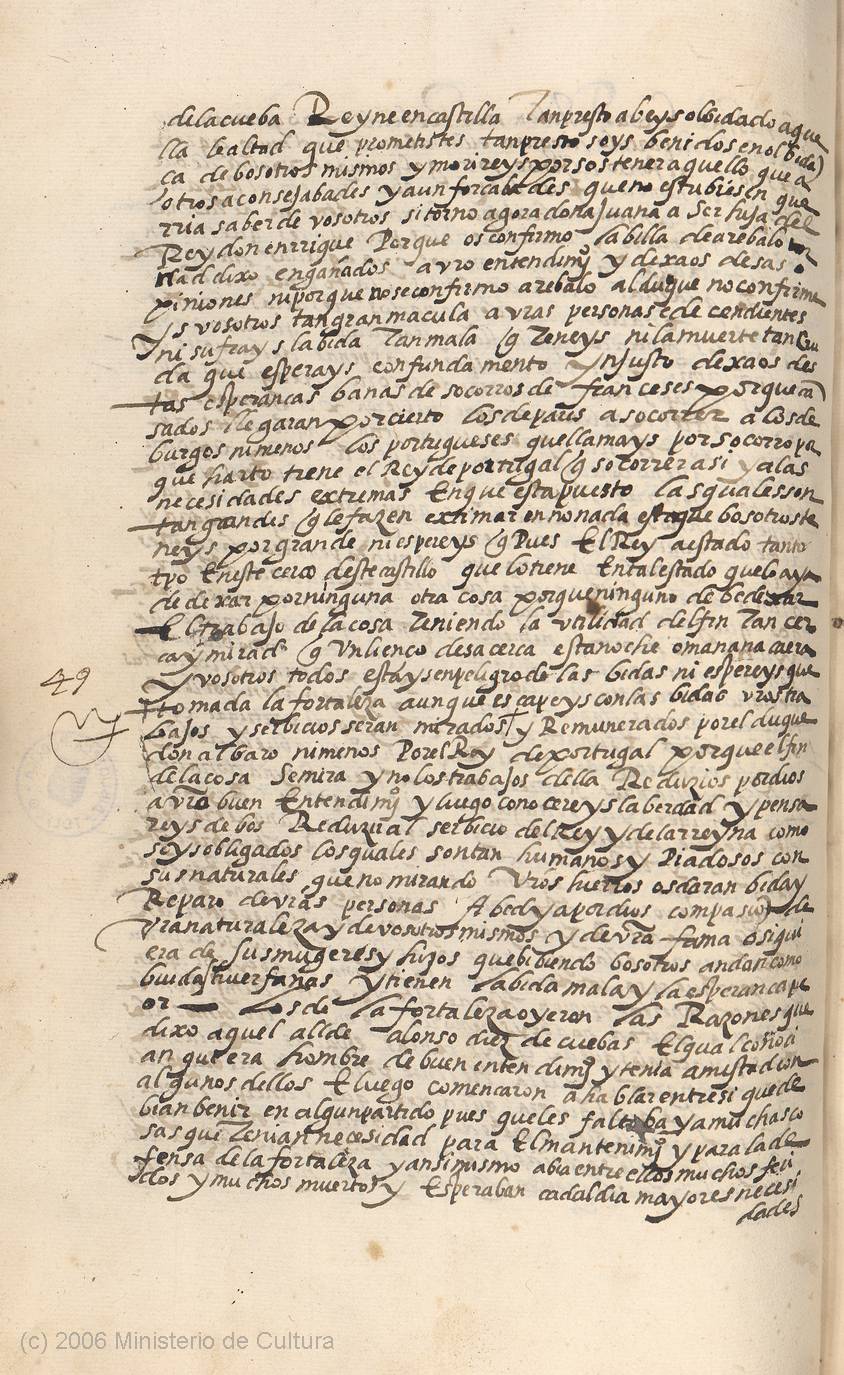 dela cueba Reyne en castilla Tan presto abeys olbidado aque
lla lealtad que prometistes tan presto soys benidos en olbida
ca de bosotros mismos y morireys por sostener aquello que a
otros aconsejabades y aun forcabades que no estubiesen que
rria saber de vosotros si torno agora doña Juana a ser hija del
Rey don enrrique Porque os confirmo la billa de arebalo
dad dixo engañados a vro entendimio y dexaos desas o
piniones ni porque no se confirmo arebalo al duque no confirme
ys vosotros tan gran macula a vras personas e decendientes
ni sufrays la bida Tan mala q Teneys ni la muerte tan
da que esperays con fundamento ynjusto dexaos des
tas esperancas banas de socorros de franceses porque can
sados llegaran por cierto los de paris a socorrer a los de
burgos ni menos los portugueses que llamays por socorro por
que harto tiene el Rey de portugal q socorrer a si y a las
necesidades extremas En que esta puesto las quales son
tan grandes q le fazen extimar en no nada esto que bosotros te
neys por grande ni espereys q Pues El Rey a estado tanto
tpo En este cerco deste castillo que lo tiene En tal estado que lo aya
de dexar por ninguna otra cosa porque ninguno debe dexar
El trabajo de la cosa Teniendo la vtilidad del fin Tan cer
ca y mirad q Un lienco desa cerca esta noche o mañana caera
y vosotros todos estays en peligro de las bidas ni espereys que
49
tomada la fortaleza aunque escapeys con las bidas vros tra
bajos y serbicios seran mirados y Remunerados por el duque
don albaro ni menos Por el Rey de portugal porque el fin
de la cosa Se mira y no los trabajos della Reduzios por dios
a vro buen Entendimio y luego conocereys la berdad y pensa
reys de bos Reduzir al serbicio del Rey y de la rreyna como
soys obligados los quales son tan humanos y Piadosos con
sus naturales que no mirando Vros hierros os daran bida y
Reparo de vras personas Abed ya por dios compasion de
vra naturaleza y de vosotros mismos y de vra fama o siqui
era de sus mugeres y hijos que bibiendo bosotros andan como
biudas huerfanas y tienen la bida mala y la esperanca pe
or Los de la fortaleza oyeron las Razones que
dixo aquel allde alonso diez de cuebas El qual conoci
an que era hombre de buen entendimio y tenia amistad con
algunos dellos E luego comencaron a hablar entre si que de
bian benir en algun partido pues que les faltaba ya muchas co
sas que Tenian necesidad para El mantenimio y para la de
fensa de la fortaleza y ansi mismo abia entre ellos muchos feri
dos y muchos muertos y Esperaban cada dia mayores necesi
dades
(c) 2006 Ministerio de Cultura